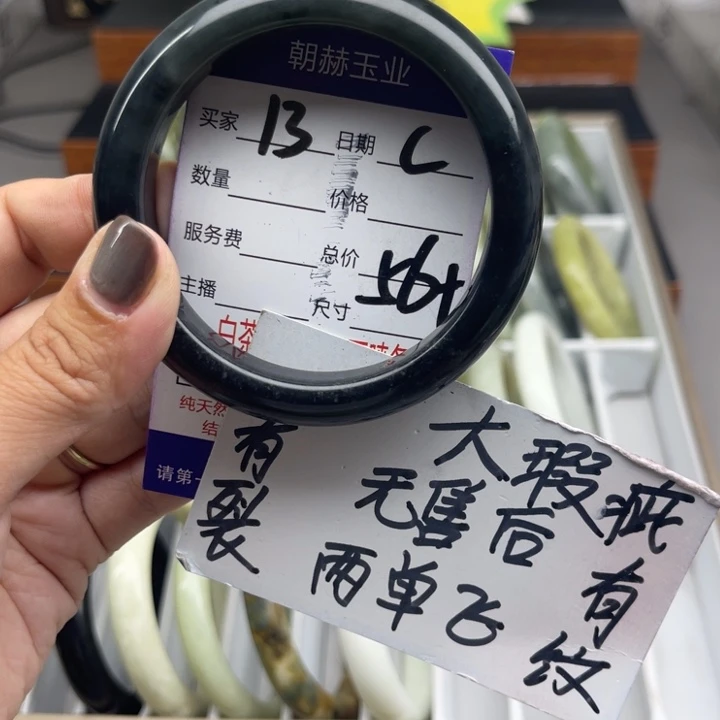 朝赫玉业
买家 13 日期 C
数量 价格
服务费 总价 56+
主播 尺寸
白茶
纯天然
结
请第一
大瑕疵
有 无售后 有
裂 两单飞 纹